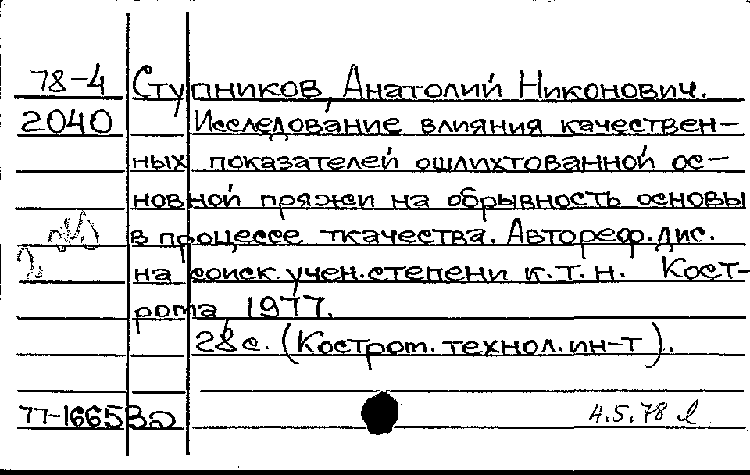 78-4 Ступников, Анатолий Никонович.
2040 Исследование влияния качествен-
ных показателей ошлихтованной ос-
новной пряжи на обрывность основы
в процессе ткачества. Автореф. дис.
на соиск. учен. степени к.т.н. Кост-
рома, 1977.
28с. (Костром. технол. ин-т).
77-16653а 4.5.78